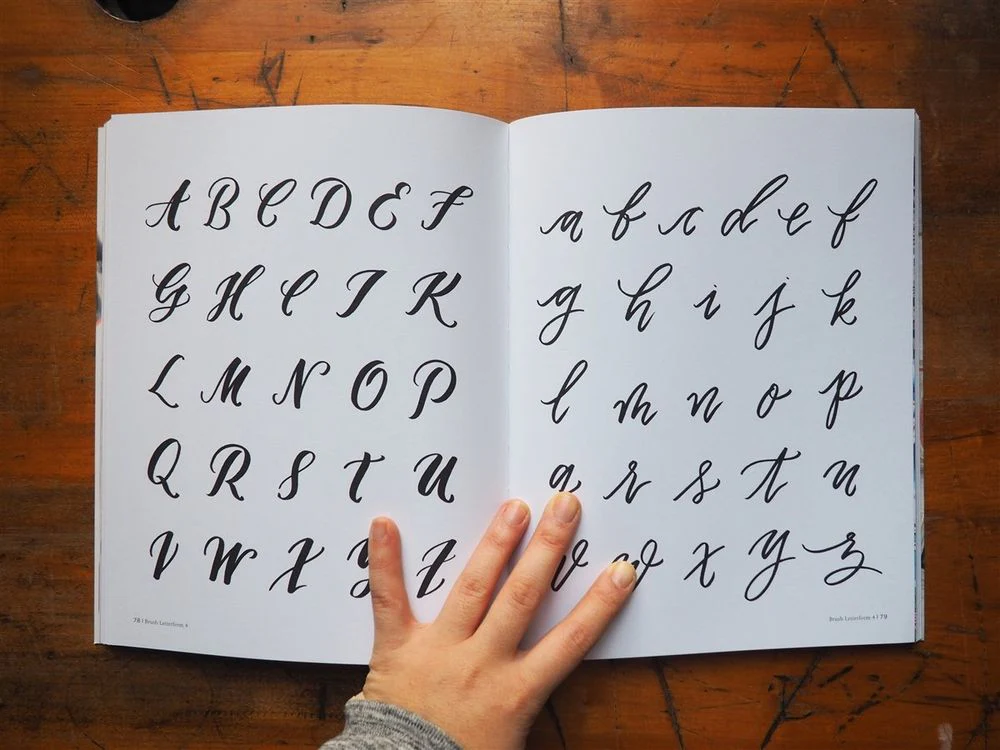 A B C D E F
G H I J K
L M N O P
Q R S T U
V W X Y Z
78 | Brush Letterform 4
a b c d e f
g h i j k
l m n o p
q r s t u
v w x y z
Brush Letterform 4 | 79